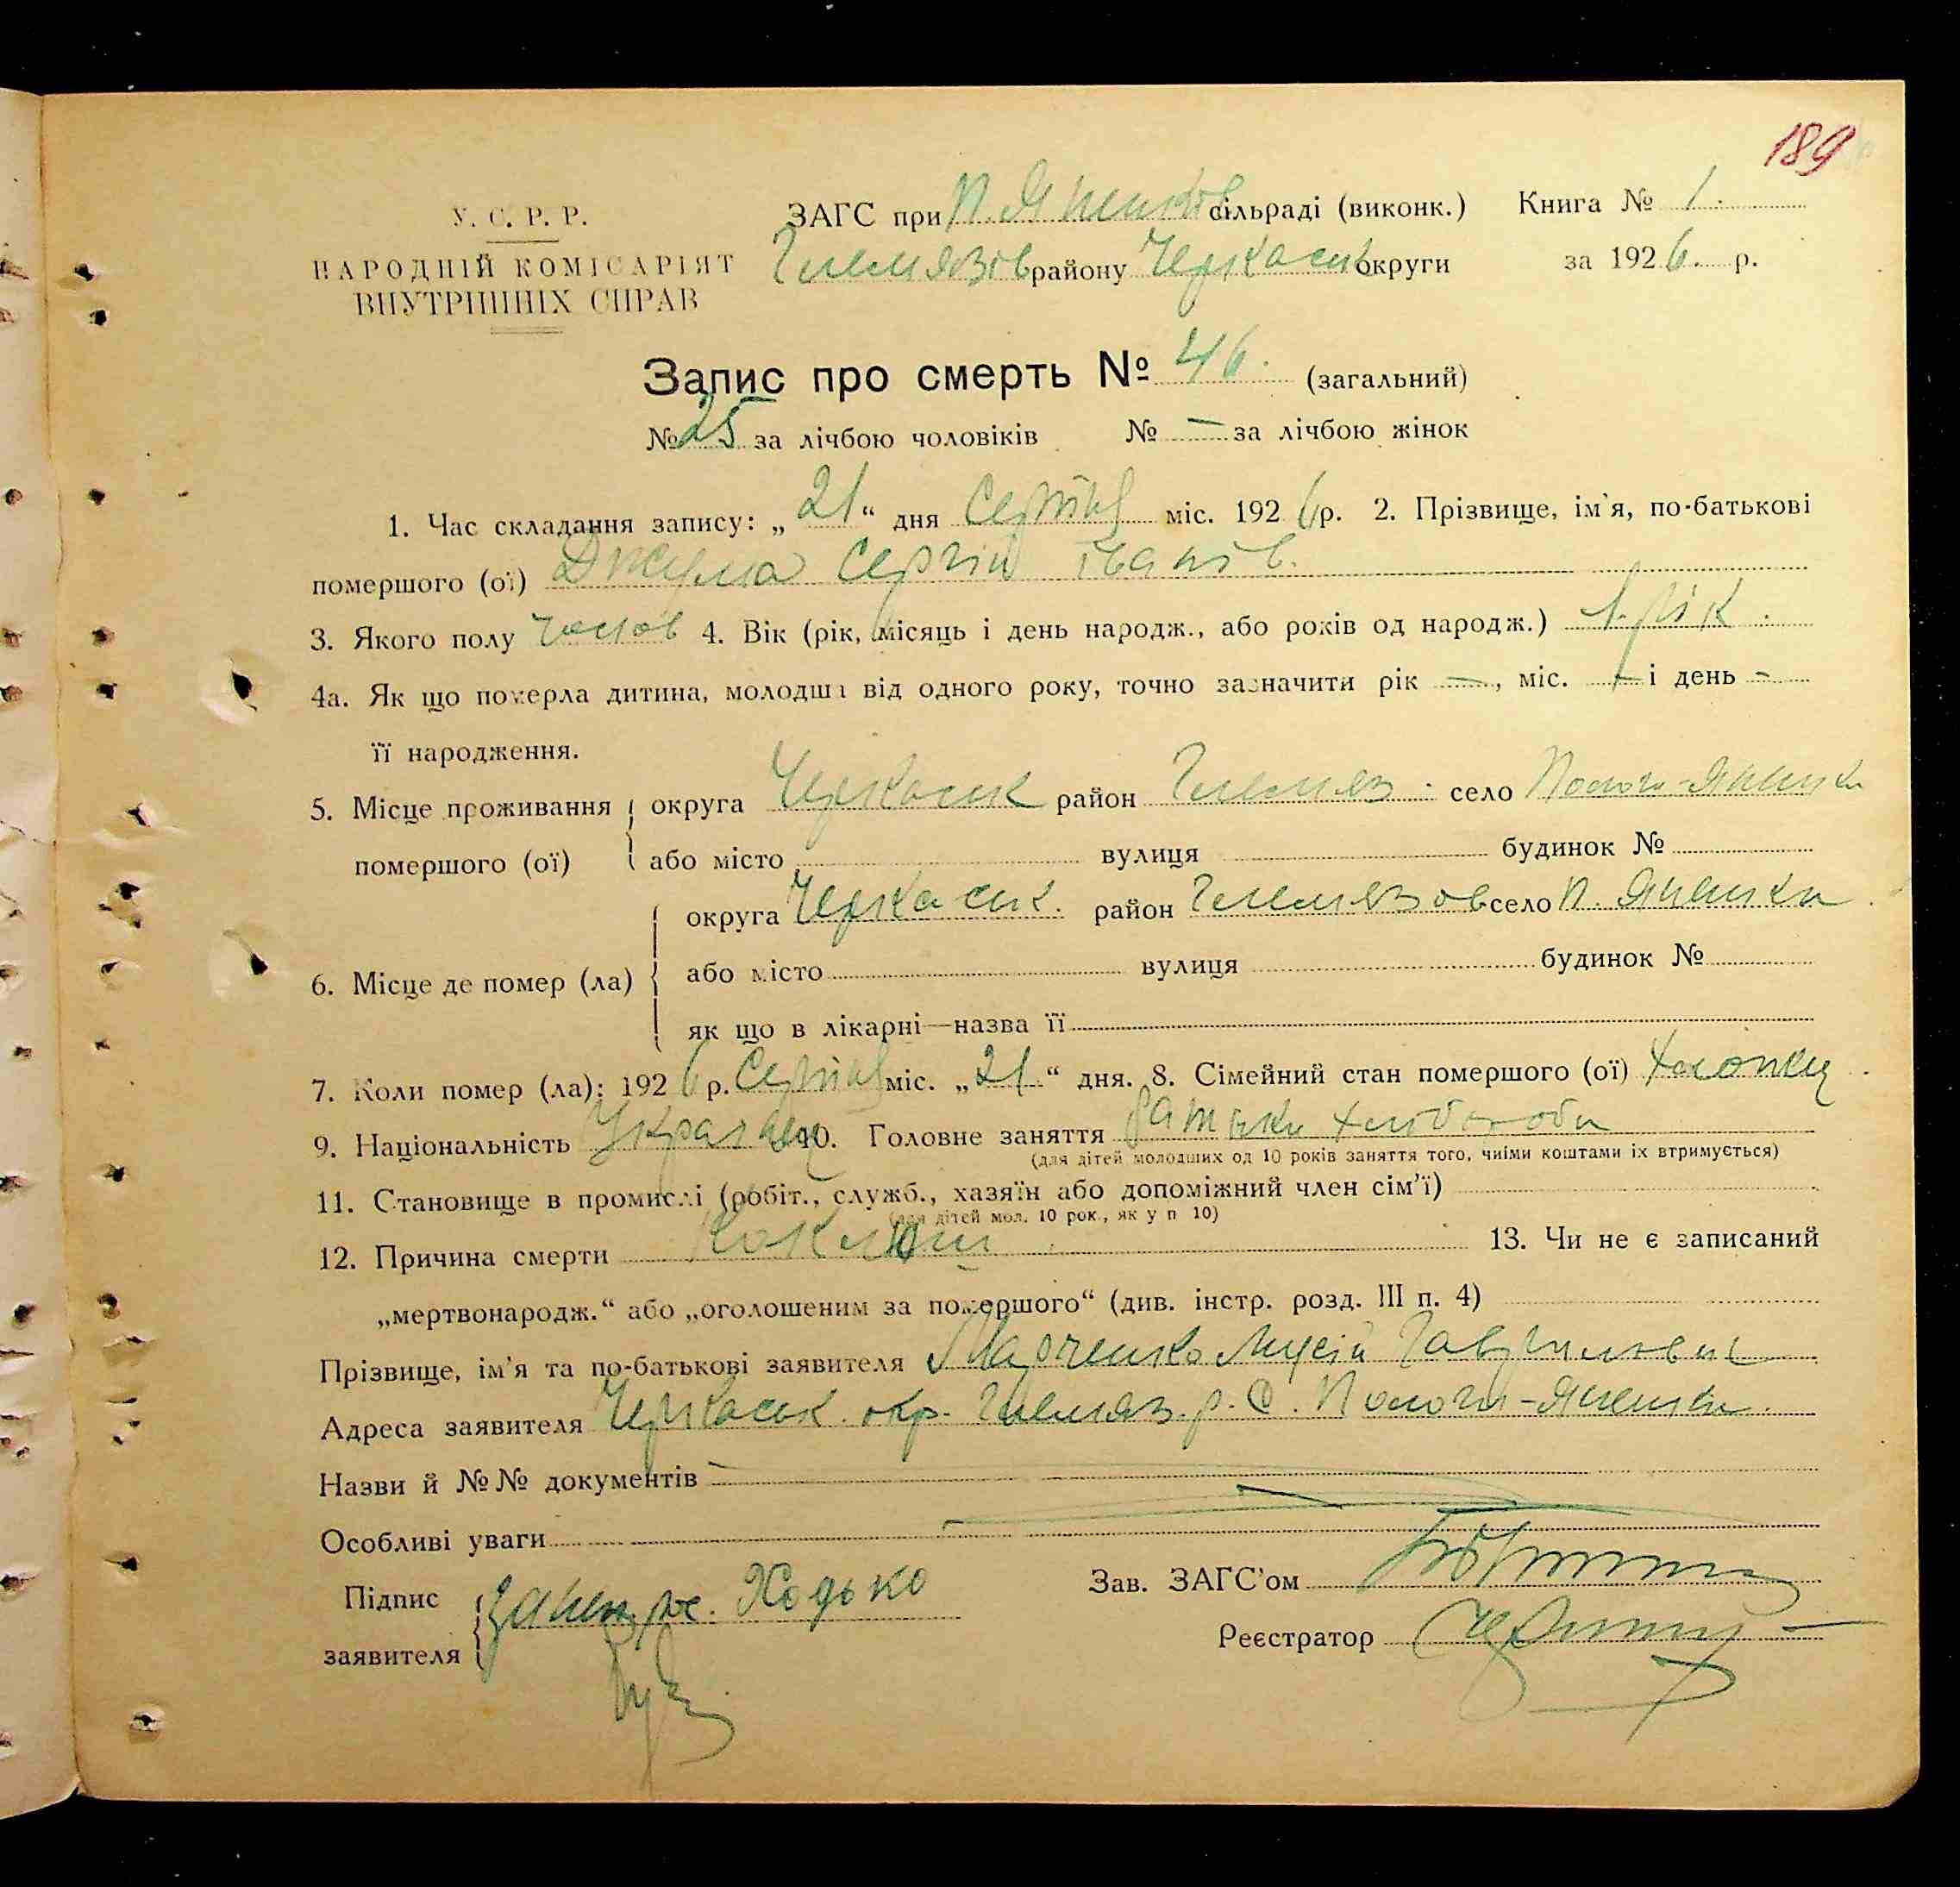 189
У. С. Р. Р.
НАРОДНІЙ КОМІСАРІЯТ
ВНУТРІШНІХ СПРАВ
ЗАГС при П. Яненків сільраді (виконк.) Книга № 1.
Гельмязів району Черкаськ округи за 1926. р.
Запис про смерть № 46. (загальний)
№ 25 за лічбою чоловіків № — за лічбою жінок
1. Час складання запису: „21“ дня Серпня міс. 1926 р. 2. Прізвище, ім'я, по-батькові
помершого (ої) Джума Сергій Іванів.
3. Якого полу чолов 4. Вік (рік, місяць і день народж., або років од народж.) 1. рік.
4а. Як що померла дитина, молодша від одного року, точно зазначити рік —, міс. — і день —
її народження.
5. Місце проживання помершого (ої) округа Черкаськ район Гельмяз. село Пологи-Яненки
або місто вулиця будинок №
6. Місце де помер (ла) округа Черкаськ. район Гельмязов село П. Яненки
або місто вулиця будинок №
як що в лікарні—назва її
7. Коли помер (ла): 1926 р. Серпня міс. „21“ дня. 8. Сімейний стан помершого (ої) хлопець
9. Національність Українець 10. Головне заняття батьки хлібороби
(для дітей молодших од 10 років заняття того, чиїми коштами їх втримується)
11. Становище в промислі (робіт., служб., хазяїн або допоміжний член сім'ї)
(для дітей мол. 10 рок., як у п 10)
12. Причина смерти Коклюш 13. Чи не є записаний
„мертвонародж.“ або „оголошеним за помершого“ (див. інстр. розд. III п. 4)
Прізвище, ім'я та по-батькові заявителя Марченко Мусій Гаврилович
Адреса заявителя Черкаськ. окр. Гельмяз. р. С. Пологи-Яненки.
Назви й №№ документів
Особливі уваги
Підпис заявителя Ходько
Зав. ЗАГС'ом
Реєстратор